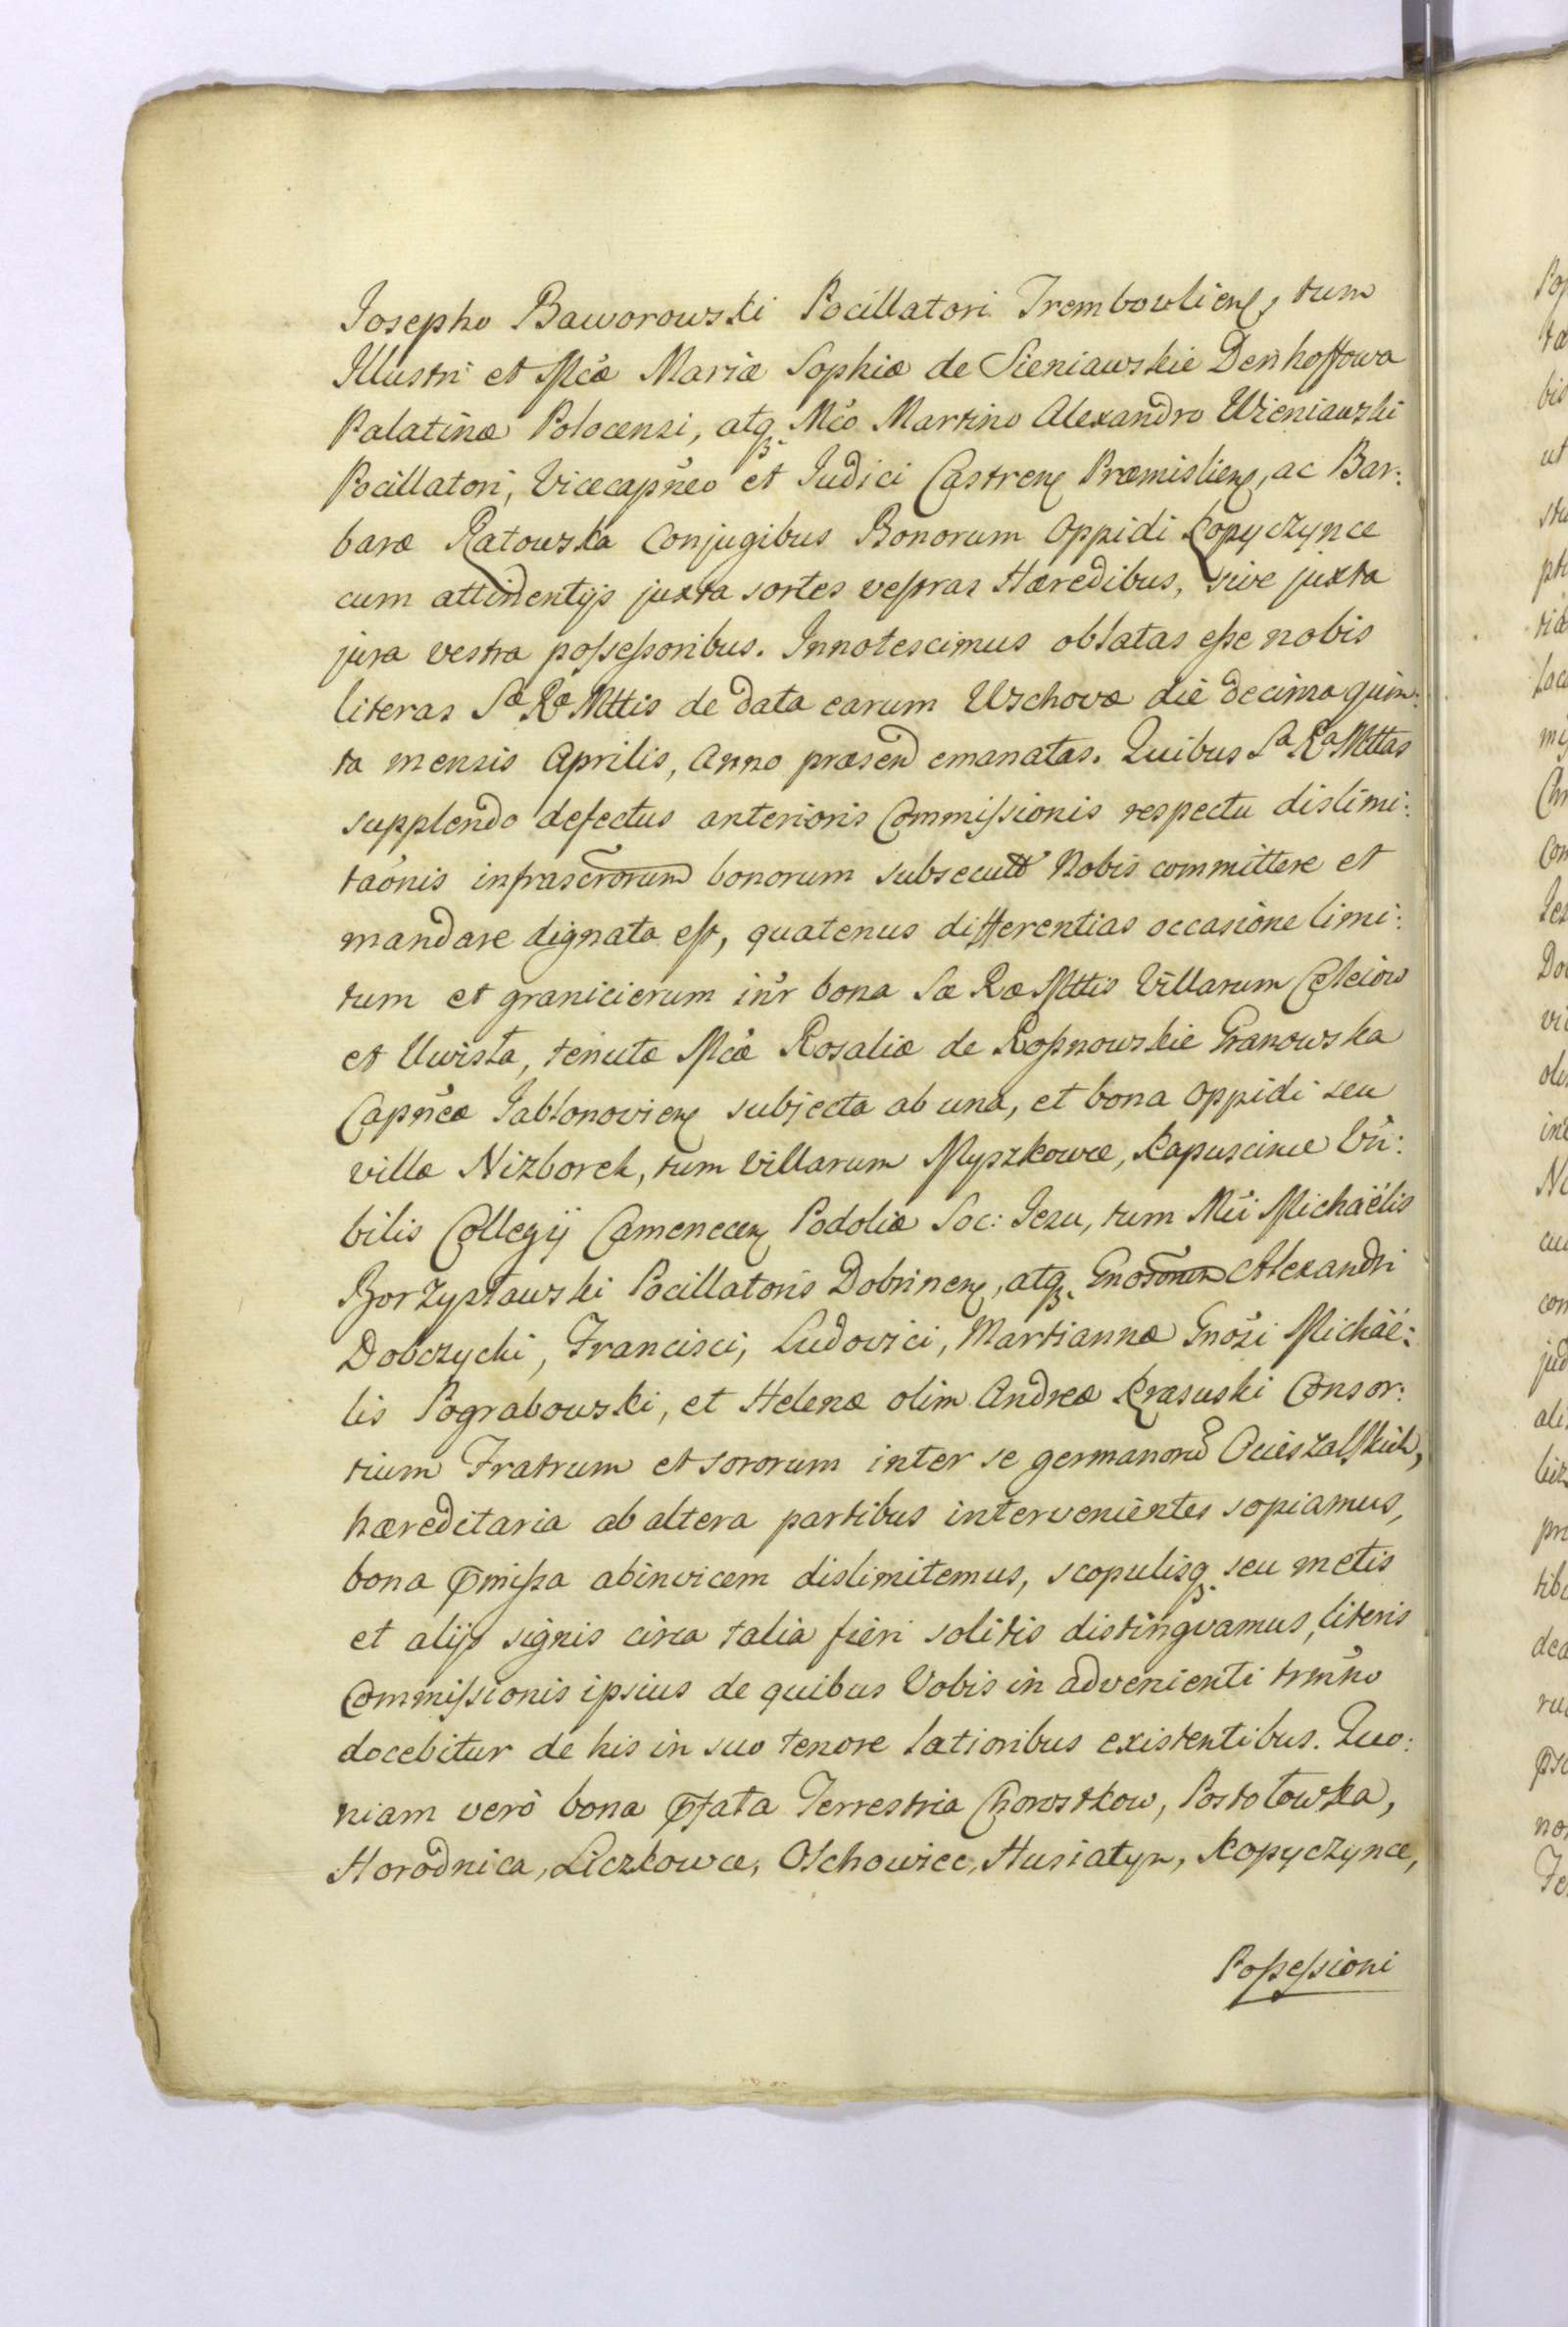 Josepho Baworowski Pocillatori Trembowliens, tum
Illustri et Mcæ Mariæ Sophiæ de Sieniawskie Denhoffowa
Palatinæ Polocensi, atq3 Mco Martino Alexandro Wieniawski
Pocillatori, Vicecapneo et Judici Castrens Præmisliens, ac Bar:
baræ Ratowska Conjugibus Bonorum Oppidi Kopyczynce
cum attinentijs juxta sortes vestras Hæredibus, sive juxta
jura vestra possessoribus. Innotescimus oblatas esse nobis
literas Sæ Ræ Mttis de data earum Wschovæ die decima quin:
ta mensis Aprilis, Anno præsen emanatas. Quibus Sa Ra Mttas
supplendo defectus anterioris Commissionis respectu dislimi:
taonis infrascrorum bonorum subsecut Nobis committere et
mandare dignata est, quatenus differentias occasione limi:
tum et granicierum inr bona Sæ Ræ Mttis Villarum Celeiow
et Uwisła, tenutæ Mcæ Rosaliæ de Kopnowskie Granowska
Capneæ Jablonoviens subjecta ab una, et bona Oppidi seu
villæ Nizborek, tum Villarum Myszkowce, Kapuscince Vn:
bilis Collegij Camenecens Podoliæ Soc: Jesu, tum Mci Michaëlis
Borzysławski Pocillatoris Dobrinens, atq3 Gnosorum Alexandri
Dobczycki, Francisci, Ludovici, Martiannæ Gnosi Michäe:
lis Pograbowski, et Helenæ olim Andreæ Krasuski Consor:
tium Fratrum et sororum inter se germanoru Cwieszalskich,
hæreditaria ab altera partibus intervenientes sopiamus,
bona pmissa abinvicem dislimitemus, scopulisq3 seu metis
et alijs signis circa talia fieri solitis distingvamus, literis
Commissionis ipsius de quibus Vobis in advenienti trmno
docebitur de his in suo tenore latioribus existentibus. Quo:
niam verò bona pfata Terrestria Chorostkow, Postołowka,
Horodnica, Liczkowce, Olchowiec, Husiatyn, Kopyczynce,
Possessioni